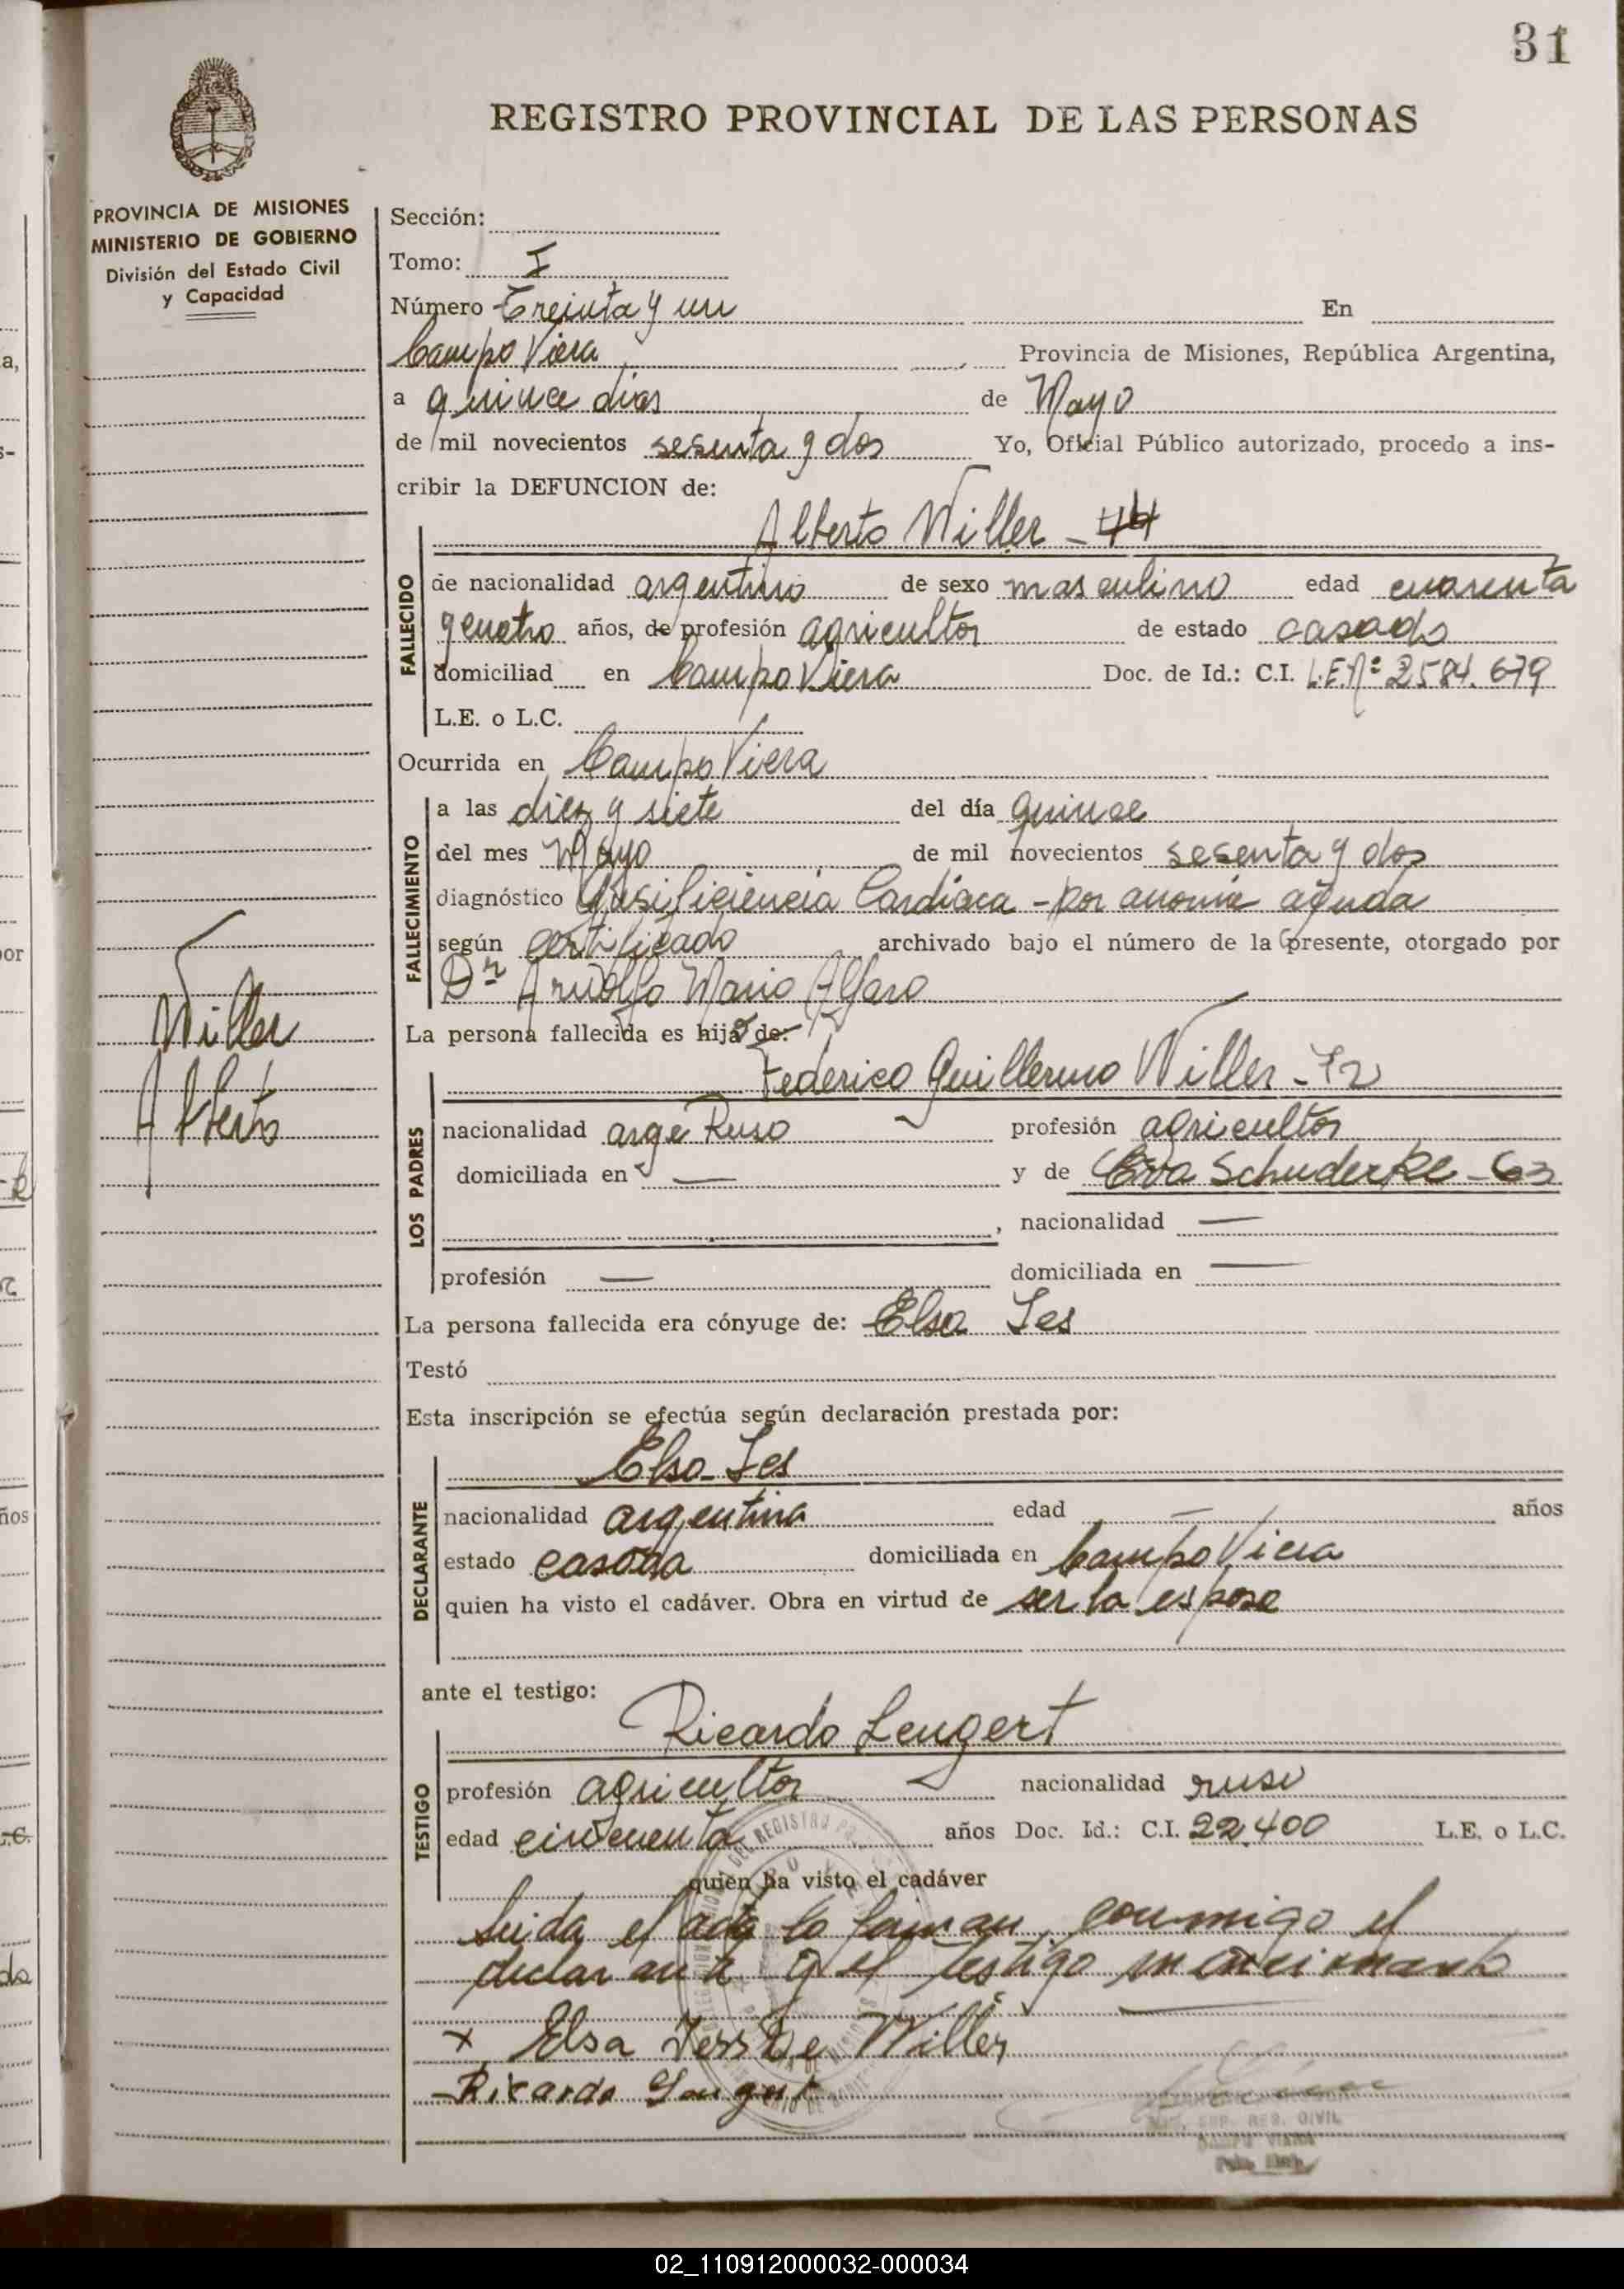 31
REGISTRO PROVINCIAL DE LAS PERSONAS
PROVINCIA DE MISIONES
MINISTERIO DE GOBIERNO
División del Estado Civil
y Capacidad
Sección:
Tomo: I
Número Treinta y un En
Campo Viera Provincia de Misiones, República Argentina,
a quince dias de Mayo
de mil novecientos sesenta y dos Yo, Oficial Público autorizado, procedo a ins-
cribir la DEFUNCION de:
Alberto Willer - 44
FALLECIDO
de nacionalidad argentino de sexo masculino edad cuarenta
y cuatro años, de profesión agricultor de estado casado
domiciliad en Campo Viera Doc. de Id.: C.I. L.E.Nº 2584.679
L.E. o L.C.
Ocurrida en Campo Viera
FALLECIMIENTO
a las diez y siete del día quince
del mes Mayo de mil novecientos sesenta y dos
diagnóstico Cardiaca - por aguda
según certificado archivado bajo el número de la presente, otorgado por
Dr Mario Alfaro
La persona fallecida es hijo de:
Willer
Alberto
Federico Guillermo Willer - 72
LOS PADRES
nacionalidad Ruso profesión agricultor
domiciliada en — y de Eva Schuderke - 63
, nacionalidad —
profesión — domiciliada en —
La persona fallecida era cónyuge de: Elsa Jes
Testó
Esta inscripción se efectúa según declaración prestada por:
Elsa Jes
DECLARANTE
nacionalidad argentina edad — años
estado casada domiciliada en Campo Viera
quien ha visto el cadáver. Obra en virtud de ser la esposa
ante el testigo:
Ricardo Leugert
TESTIGO
profesión agricultor nacionalidad ruso
edad cincuenta años Doc. Id.: C.I. 22.400 L.E. o L.C.
quien ha visto el cadáver
Leida el acta la firman conmigo el
declarante y el testigo mencionado
x Elsa Jess De Willer
Ricardo
REG. CIVIL
02_110912000032-000034